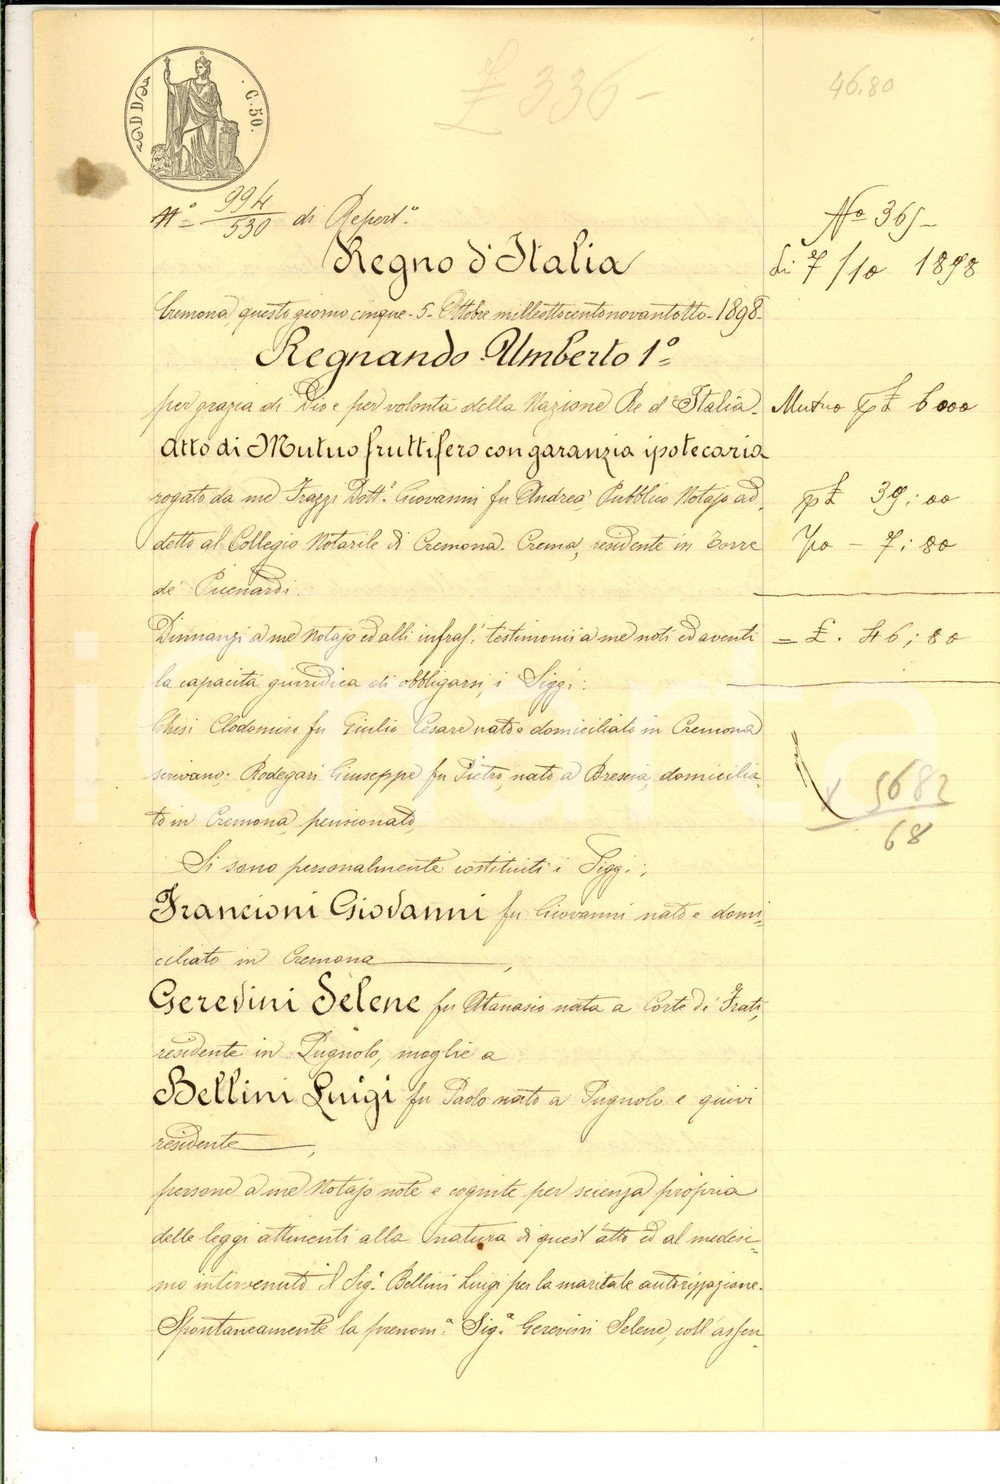 ₤ 336-
46.80
C. 50.
N.° 994/530 di Repert.°
N° 365-
Regno d'Italia
Li 7/10 1898
Cremona, questo giorno cinque - 5 - Ottobre milleottocentonovantotto - 1898 -
Regnando Umberto 1°
per grazia di Dio e per volontà della Nazione Re d'Italia -
Mutuo p ₤ 6000
Atto di Mutuo fruttifero con garanzia ipotecaria
rogato da me Frazzi Dott.r Giovanni fu Andrea, Pubblico Notajo ad,
p ₤ 39:00
detto al Collegio Notarile di Cremona - Crema, residente in Torre
- 7:80
de' Picenardi.
Dinnanzi a me Notajo ed alli infras.i testimonii a me noti ed aventi
= ₤. 46:80
la capacità giuridica di obbligarsi, i Sigg.i:
Ghisi Clodomiro fu Giulio Cesare nato e domiciliato in Cremona
scrivano: Rodegari Giuseppe fu Pietro, nato a Brescia, domicilia-
5682
to in Cremona, pensionato,
68
Si sono personalmente costituiti i Sigg.i:
Francioni Giovanni fu Giovanni nato e domi=
ciliato in Cremona,
Gerevini Selene fu Atanasio nata a Corte de' Frati,
residente in Pugnolo, moglie a
Bellini Luigi fu Paolo nato a Pugnolo e quivi
residente,
persone a me Notajo note e cognite per scienza propria
delle leggi attinenti alla natura di quest'atto ed al medesi=
mo intervenuto il Sig.r Bellini Luigi per la maritale autorizzazione.
Spontaneamente la prenom.a Sig.a Gerevini Selene, coll'assen-